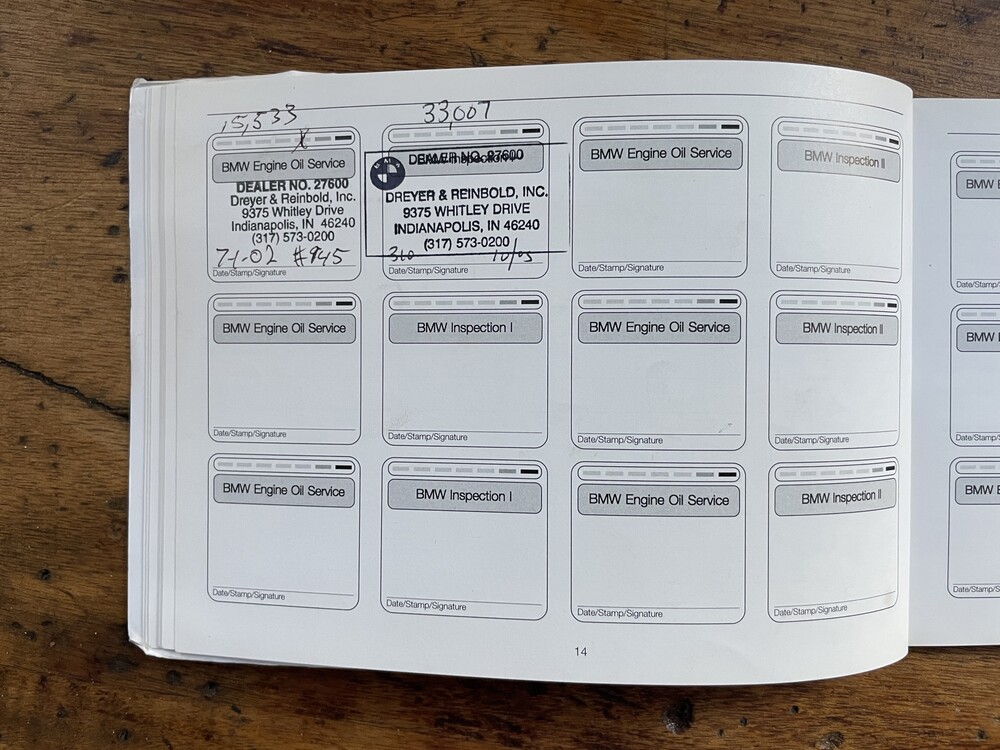 15,533
X
BMW Engine Oil Service
DEALER NO. 27600
Dreyer & Reinbold, Inc.
9375 Whitley Drive
Indianapolis, IN 46240
(317) 573-0200
7-1-02 #945
Date/Stamp/Signature
33,007
DEALER NO. 27600
DREYER & REINBOLD, INC.
9375 WHITLEY DRIVE
INDIANAPOLIS, IN 46240
(317) 573-0200
310 10/05
Date/Stamp/Signature
BMW Engine Oil Service
Date/Stamp/Signature
BMW Inspection II
Date/Stamp/Signature
BMW Engine Oil Service
Date/Stamp/Signature
BMW Inspection I
Date/Stamp/Signature
BMW Engine Oil Service
Date/Stamp/Signature
BMW Inspection II
Date/Stamp/Signature
BMW Engine Oil Service
Date/Stamp/Signature
BMW Inspection I
Date/Stamp/Signature
BMW Engine Oil Service
Date/Stamp/Signature
BMW Inspection II
Date/Stamp/Signature
14
BMW
Date
BMW
Date
BMW
Date